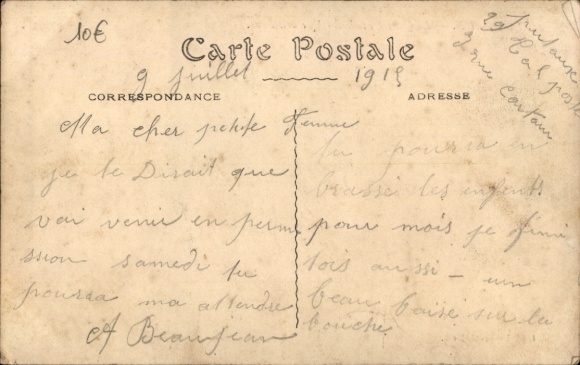 10€
Carte Postale
9 juillet 1915
CORRESPONDANCE
ADRESSE
Ma cher petite Femme
je te Dirait que
vai venir en permi
ssion samedi tu
poura ma attendre
A Beaujean
tu poura en
brasse les enfents
pour mois je fini
tois aussi - un
beau baise sur la
bouche